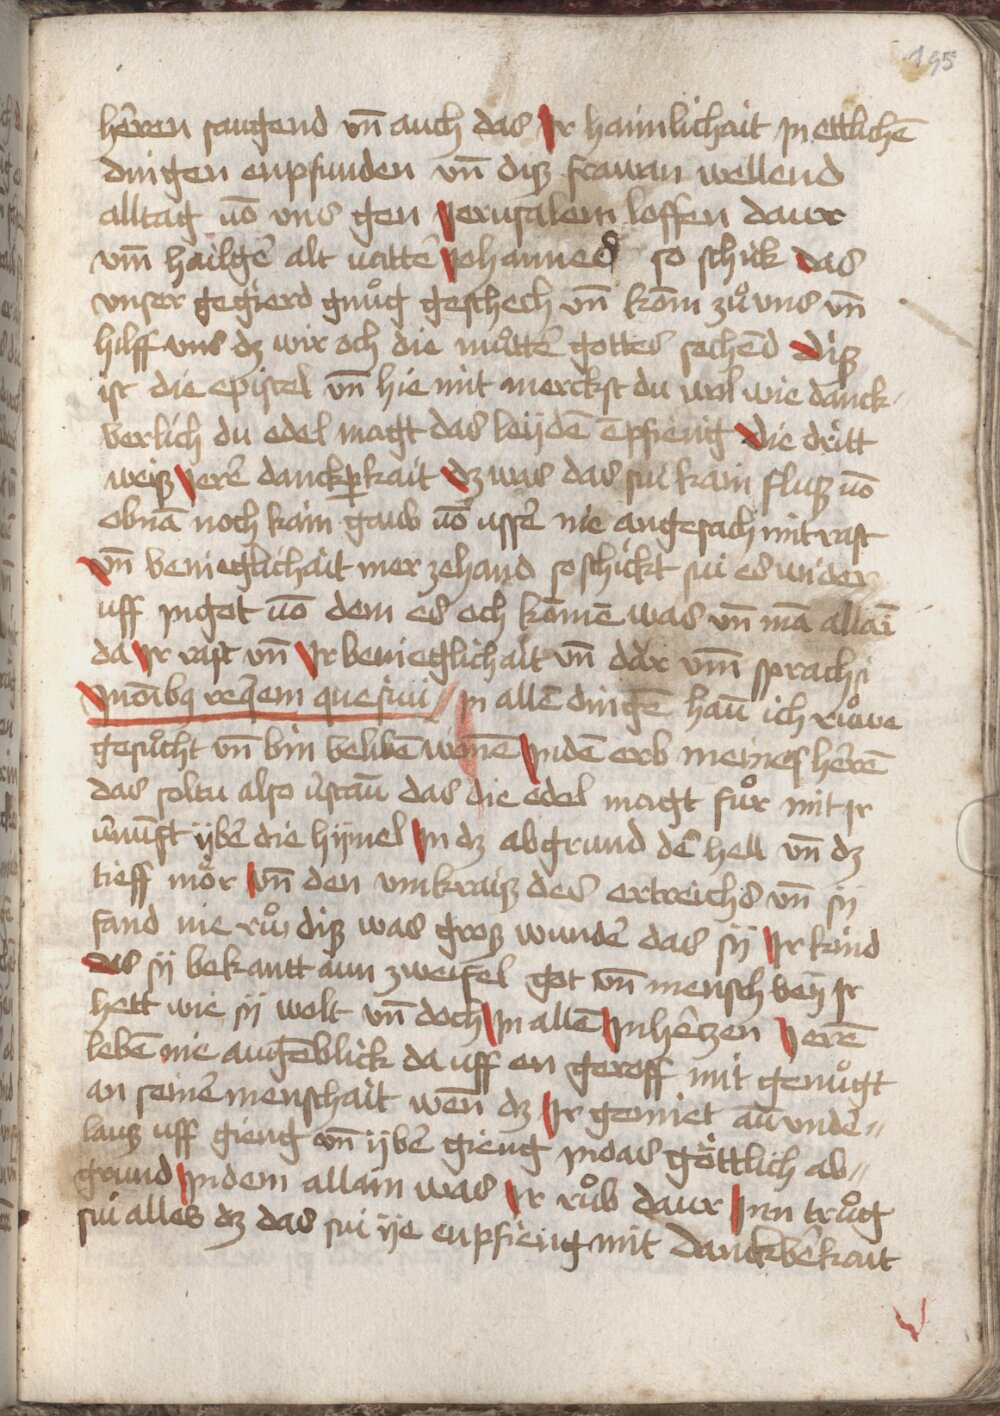 195
hêren saugend vn̄ auch das Ir haimlichait jn ettlichē
dingen enpfunden vn̄ diß frawan wellend
alltag vō vns gen Jerusalem loffen daur
vm̄ hailgē alt vattē Johannes so schick das
vnser gegierd gnůg geschech vn̄ kom zů vns vn̄
hilff vns dz wir och die můttē gottes sechēd Diß
ist die epistel vn̄ hie mit merckst du wol wie danck-
berlich du edel magt das leijdēēpfieng Die dritt
weiß Jerē danckꝑkait dz was das sui kain fluß vō
obnā noch kain gaub vō ussē nie angesach mit rast
vn̄ benieglichait mer zehand so schickt sui es wider
uff jn got vō dem es och komē was vn̄ mā allaī
da Ir rast vn̄ Ir benieglichait vn̄ dar vm̄ sprach si
Jn oībꝫ req̄em quesiui // jn allē dingē hau̅ ich růwe
gesůcht vn̄ bin belibē wonē Jn dē erb meines hērē
das soltu also v̄stau̅ das die edel magt fůr mit Ir
v̄nu̅ft ijbē die hijmel Jn dz abgrund dē hell vn̄ dz
tieff mör vn̄ den vmkraiß des ertreichs vn̄ sij
fand nie rův diß was groß wundē das sij Ir kind
das sij bekantt aun zweifel got vn̄ mensch beij Ir
hett wie sij wolt vn̄ doch Jn allē Jn hêtzen Jerē
lebē nie augēblick da uff en geroff mit genůgt
an seinē menschait wen̄ dz Ir gemiet au̅ vndē//
lauß uff gieng vn̄ ijbē gieng jn das göttlich ab//
grund Jn dem allain was Ir růb daur Jnn trůg
sui alles dz das sui ije enpfieng mit danckbēkait